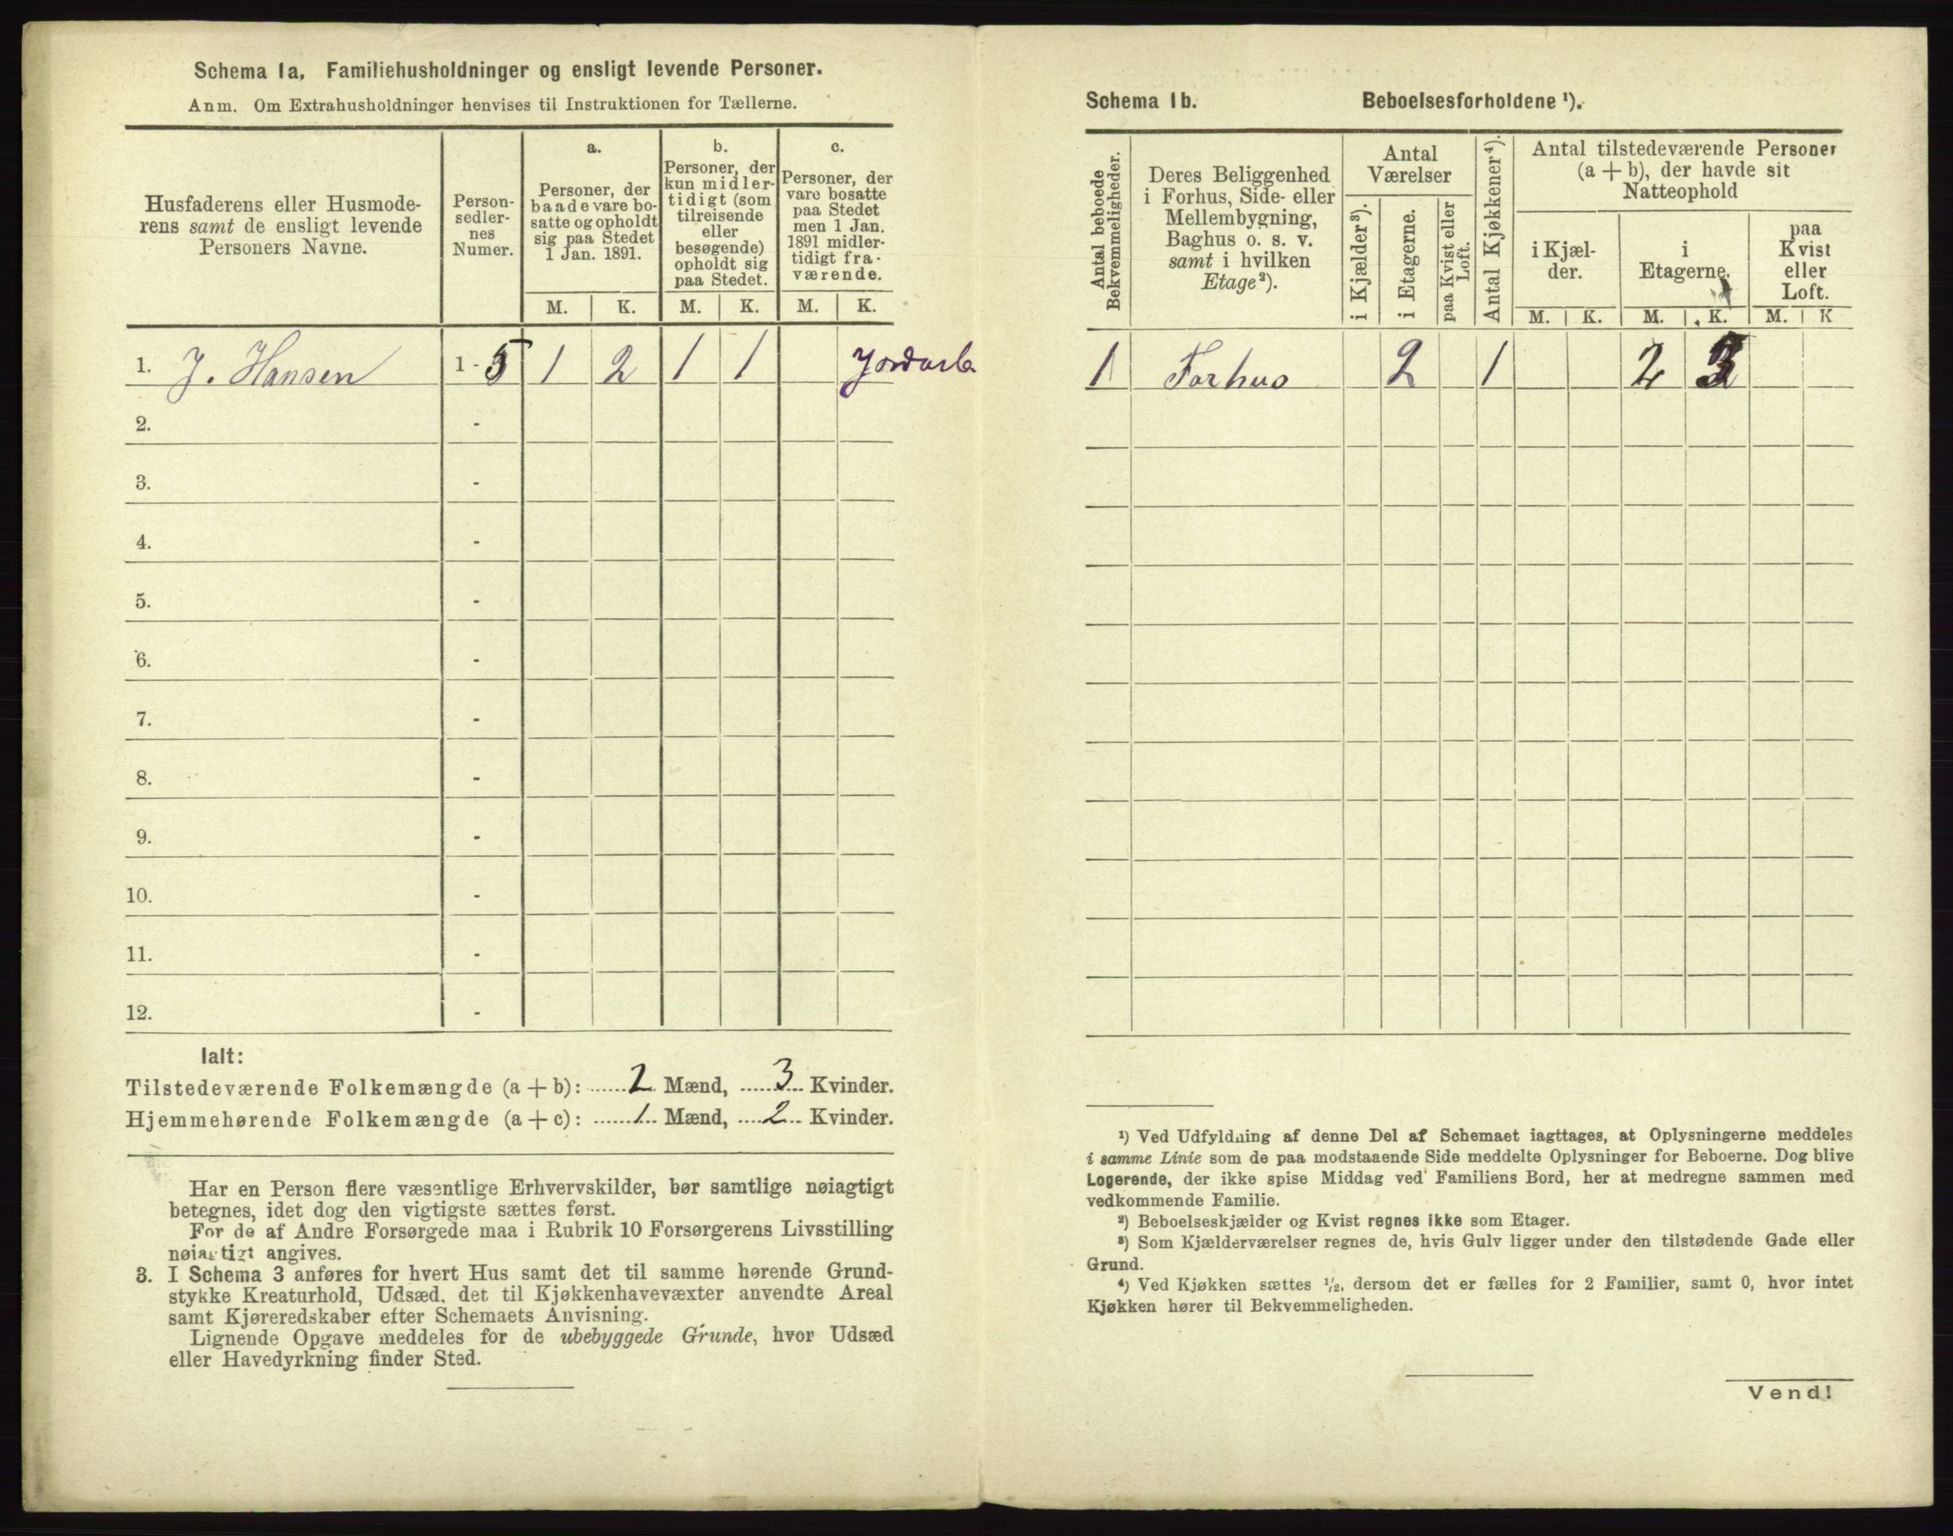 Schema 1a. Familiehusholdninger og ensligt levende Personer.
Anm. Om Extrahusholdninger henvises til Instruktionen for Tællerne.
Husfaderens eller Husmode-
rens samt de ensligt levende
Personers Navne.
Person-
sedler-
nes
Numer.
a.
Personer, der
baade vare bo-
satte og opholdt
sig paa Stedet
1 Jan. 1891.
b.
Personer, der
kun midler-
tidigt (som
tilreisende
eller
besøgende)
opholdt sig
paa Stedet.
c.
Personer, der
vare bosatte
paa Stedet
men 1 Jan.
1891 midler-
tidigt fra-
værende.
M. K. M. K. M. K.
1. J. Hansen 1 - 5 1 2 1 1
2. -
3. -
4. -
5. -
6. -
7. -
8. -
9. -
10. -
11. -
12. -
Ialt:
Tilstedeværende Folkemængde (a + b): 2 Mænd, 3 Kvinder.
Hjemmehørende Folkemængde (a + c): 1 Mænd, 2 Kvinder.
Har en Person flere væsentlige Erhvervskilder, bør samtlige nøiagtigt
betegnes, idet dog den vigtigste sættes først.
For de af Andre Forsørgede maa i Rubrik 10 Forsørgerens Livsstilling
nøiagtigt angives.
3. I Schema 3 anføres for hvert Hus samt det til samme hørende Grund-
stykke Kreaturhold, Udsæd, det til Kjøkkenhavevæxter anvendte Areal
samt Kjøreredskaber efter Schemaets Anvisning.
Lignende Opgave meddeles for de ubebyggede Grunde, hvor Udsæd
eller Havedyrkning finder Sted.
Schema 1b. Beboelsesforholdene ¹).
Antal beboede
Bekvemmeligheder.
Deres Beliggenhed
i Forhus, Side- eller
Mellembygning,
Baghus o. s. v.
samt i hvilken
Etage²).
Antal
Værelser
i Kjælder³).
i Etagerne.
paa Kvist eller
Loft.
Antal Kjøkkener⁴).
Antal tilstedeværende Personer
(a + b), der havde sit
Natteophold
i Kjæl-
der.
i
Etagerne.
paa
Kvist
eller
Loft.
M. K. M. K. M. K
1 Forhus 2 1 2 3
¹) Ved Udfyldning af denne Del af Schemaet iagttages, at Oplysningerne meddeles
i samme Linie som de paa modstaaende Side meddelte Oplysninger for Beboerne. Dog blive
Logerende, der ikke spise Middag ved Familiens Bord, her at medregne sammen med
vedkommende Familie.
²) Beboelseskjælder og Kvist regnes ikke som Etager.
³) Som Kjælderværelser regnes de, hvis Gulv ligger under den tilstødende Gade eller
Grund.
⁴) Ved Kjøkken sættes ½, dersom det er fælles for 2 Familier, samt 0, hvor intet
Kjøkken hører til Bekvemmeligheden.
Vend!